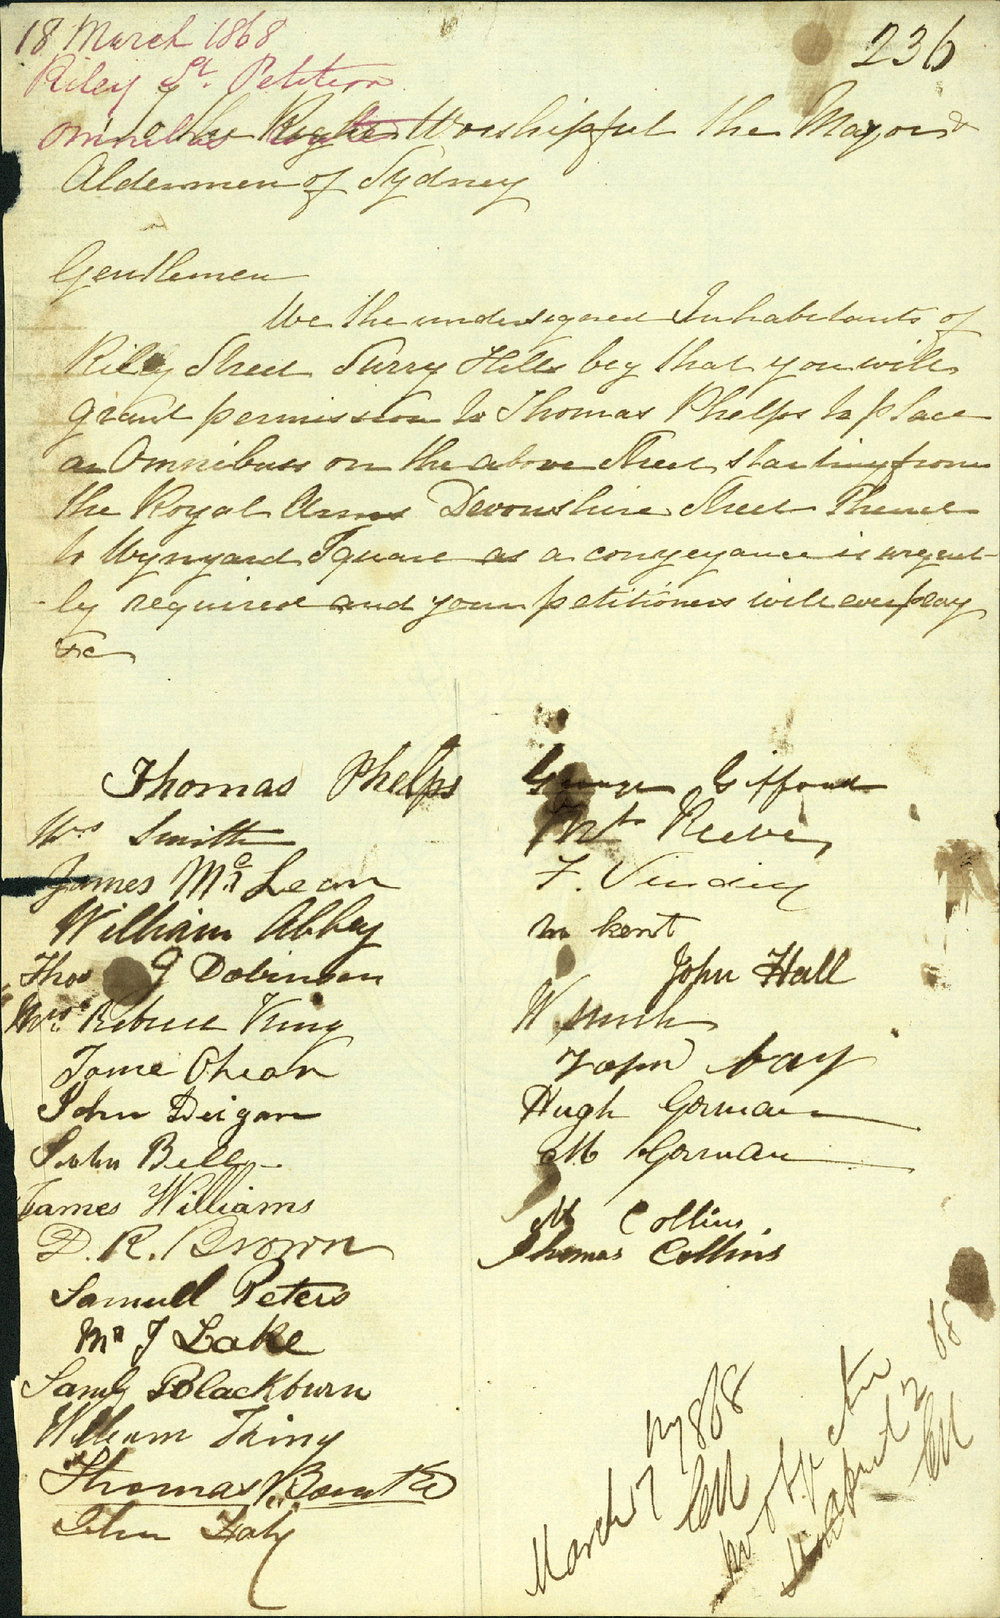 18 March 1868
236
Riley St. Petition
Omnibus
To the Right Worshipful the Mayor &
Aldermen of Sydney
Gentlemen
We the undersigned Inhabetants of
Riley Street Surry Hills beg that you will
grant permission to Thomas Phelps to place
an Omnibuss on the above Street starting from
the Royal Arms Devonshire Street Thence
to Wynyard Square as a conveyance is urgent-
-ly required and your petitioners will ever pray
&c
Thomas Phelps
Mrs Smith
James Mc Lean
William Abbey
Thos G Dobinson
Mrs. Rebecca King
John Deigan
John Bell
James Williams
D. R. Brown
Samuel Peters
Mr J Lake
Saml Blackburn
William King
Thomas
John
George Gifford
Reeve
F.
m kent
John Hall
W Smith
Hugh Gorman
M Gorman
M Collins
Thomas Collins
March 17 1868
No objection
68